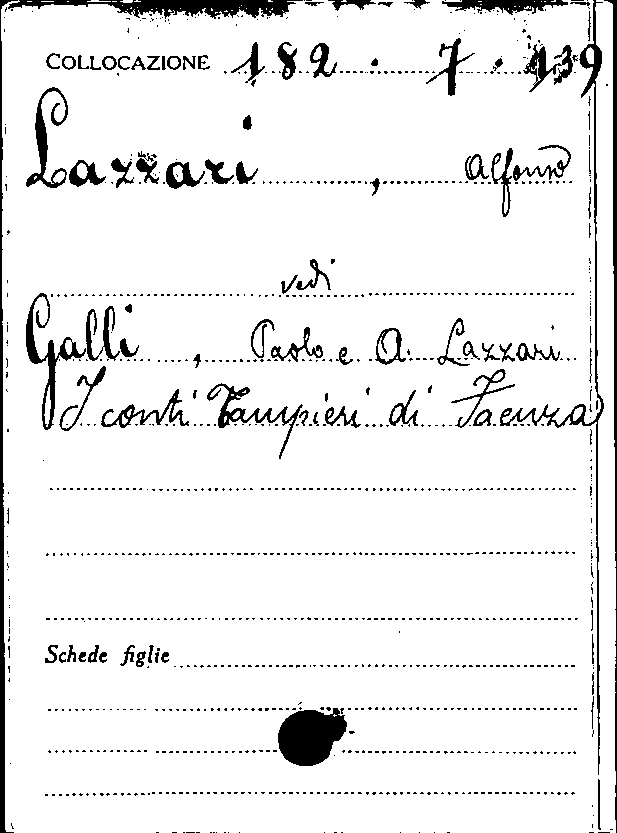 COLLOCAZIONE 182 . 7 . 139
Lazzari , Alfonso
vedi
Galli , Paolo e A. Lazzari
I conti Tampieri di Faenza
Schede figlie